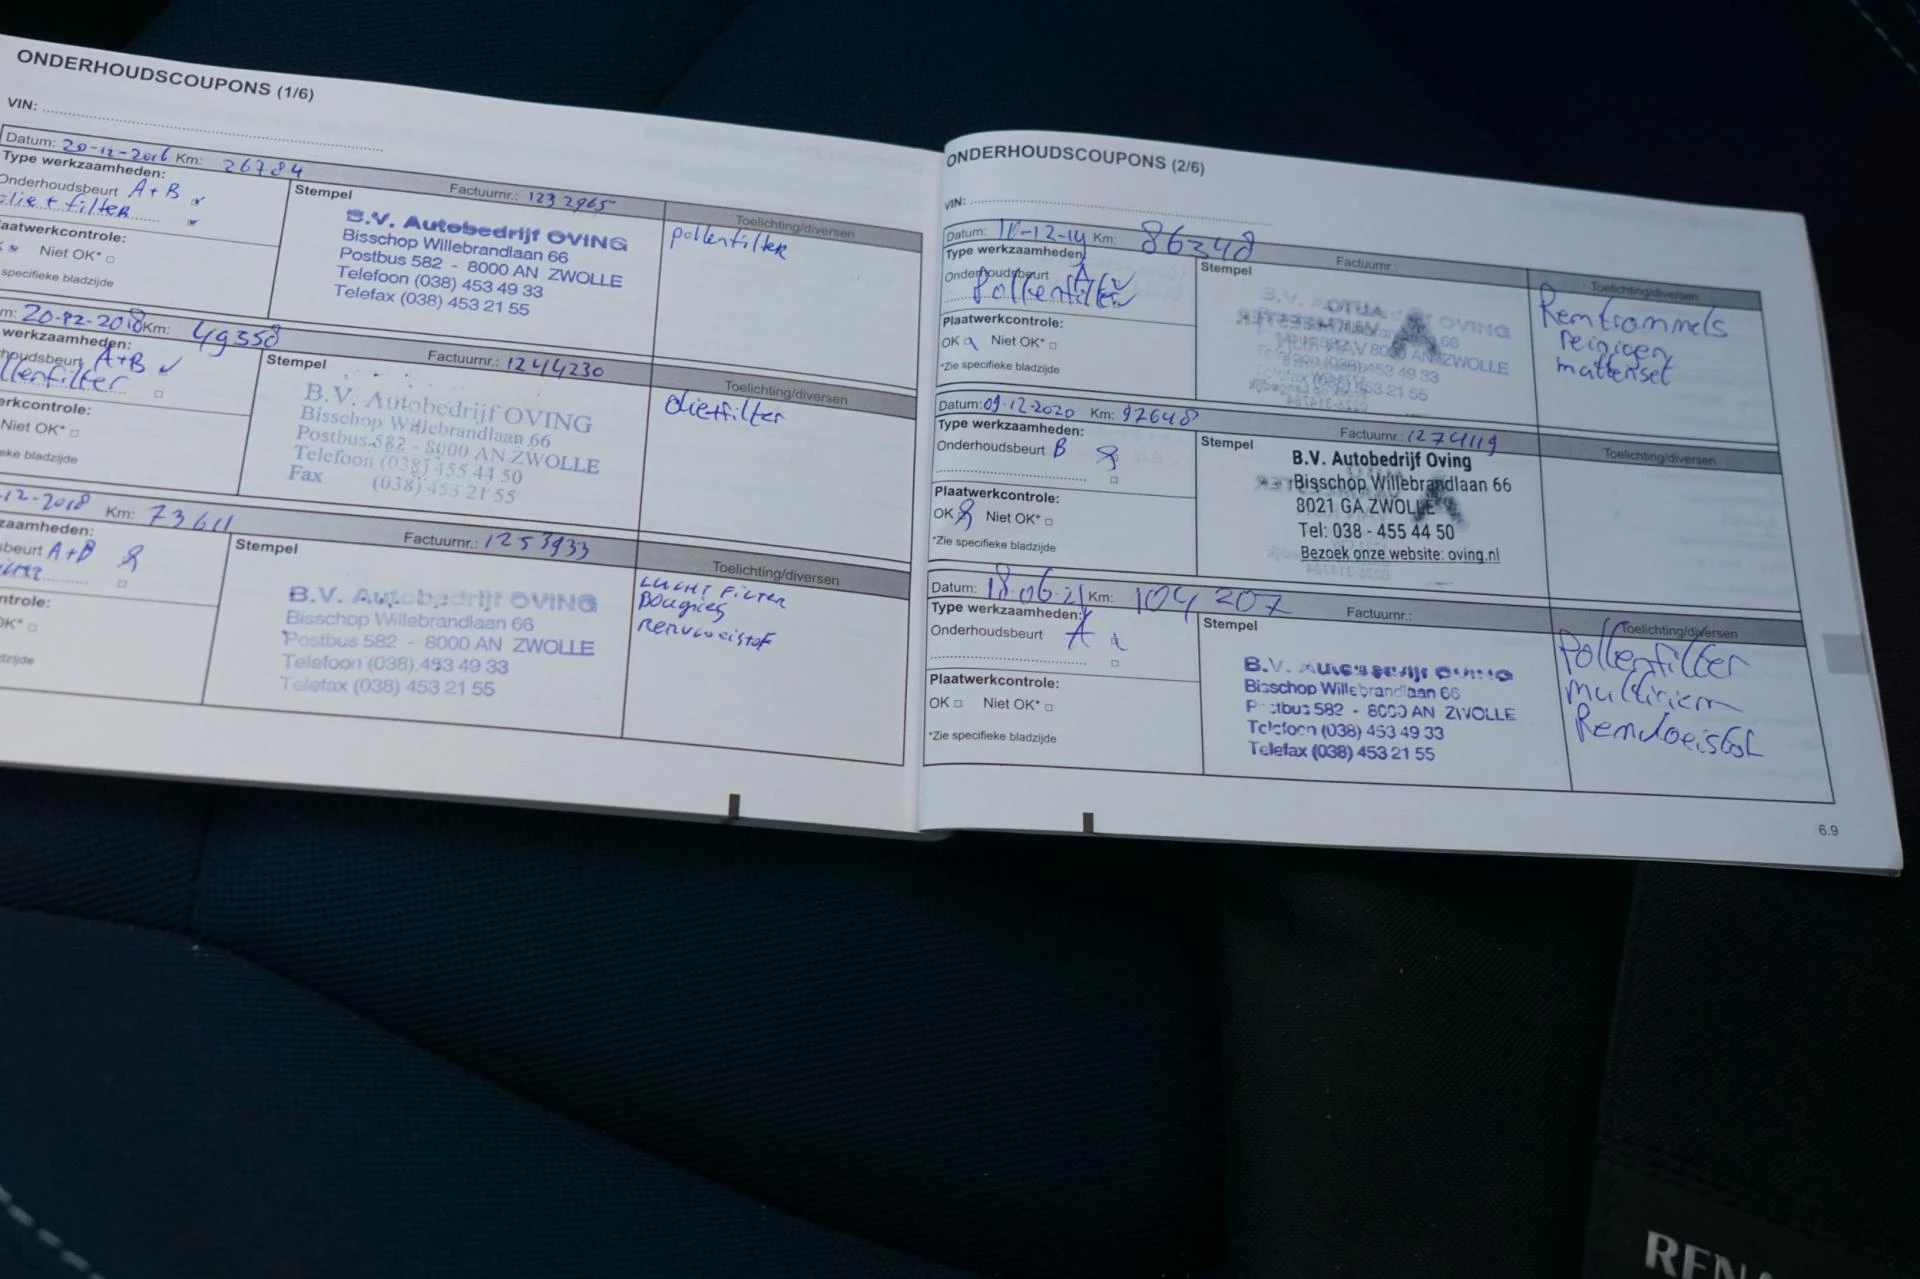 ONDERHOUDSCOUPONS (1/6)
VIN:
Datum: 20-12-2016 Km: 26784
Type werkzaamheden:
Onderhoudsbeurt A+B
olie + filter
Stempel
Factuurnr.: 1232965
Toelichting/diversen
B.V. Autobedrijf OVING
Bisschop Willebrandlaan 66
Postbus 582 - 8000 AN ZWOLLE
Telefoon (038) 453 49 33
Telefax (038) 453 21 55
pollenfilter
aatwerkcontrole:
Niet OK*
specifieke bladzijde
m: 20-12-2018 Km: 49558
werkzaamheden:
houdsbeurt A+B
llenfilter
Stempel
Factuurnr.: 1244230
Toelichting/diversen
B.V. Autobedrijf OVING
Bisschop Willebrandlaan 66
Postbus 582 - 8000 AN ZWOLLE
Telefoon (038) 455 44 50
Fax (038) 453 21 55
olie+filter
erkcontrole:
Niet OK*
eke bladzijde
-12-2018 Km: 73611
zaamheden:
sbeurt A+B
Stempel
Factuurnr.: 1253933
Toelichting/diversen
B.V. Autobedrijf OVING
Bisschop Willebrandlaan 66
Postbus 582 - 8000 AN ZWOLLE
Telefoon (038) 453 49 33
Telefax (038) 453 21 55
LUCHT FILTER
Bougies
Remvloeistof
ntrole:
OK*
dzijde
ONDERHOUDSCOUPONS (2/6)
VIN:
Datum: Km: 86348
Type werkzaamheden:
Onderhoudsbeurt A
Pollenfilter
Stempel
Factuurnr.:
Toelichting/diversen
OVING
66
8000 AN ZWOLLE
453 49 33
453 21 55
Remtrommels
reinigen
mattenset
Plaatwerkcontrole:
OK Niet OK*
*Zie specifieke bladzijde
Datum: 09-12-2020 Km: 97648
Type werkzaamheden:
Onderhoudsbeurt B
Stempel
Factuurnr.: 1274119
Toelichting/diversen
B.V. Autobedrijf Oving
Bisschop Willebrandlaan 66
8021 GA ZWOLLE
Tel: 038 - 455 44 50
Bezoek onze website: oving.nl
Plaatwerkcontrole:
OK Niet OK*
*Zie specifieke bladzijde
Datum: 18-06-21 Km: 104207
Type werkzaamheden:
Onderhoudsbeurt A
Stempel
Factuurnr.:
Toelichting/diversen
B.V. Autobedrijf OVING
Bisschop Willebrandlaan 66
Postbus 582 - 8000 AN ZWOLLE
Telefoon (038) 453 49 33
Telefax (038) 453 21 55
Pollenfilter
multiriem
Remvloeistof
Plaatwerkcontrole:
OK Niet OK*
*Zie specifieke bladzijde
6.9
RENA